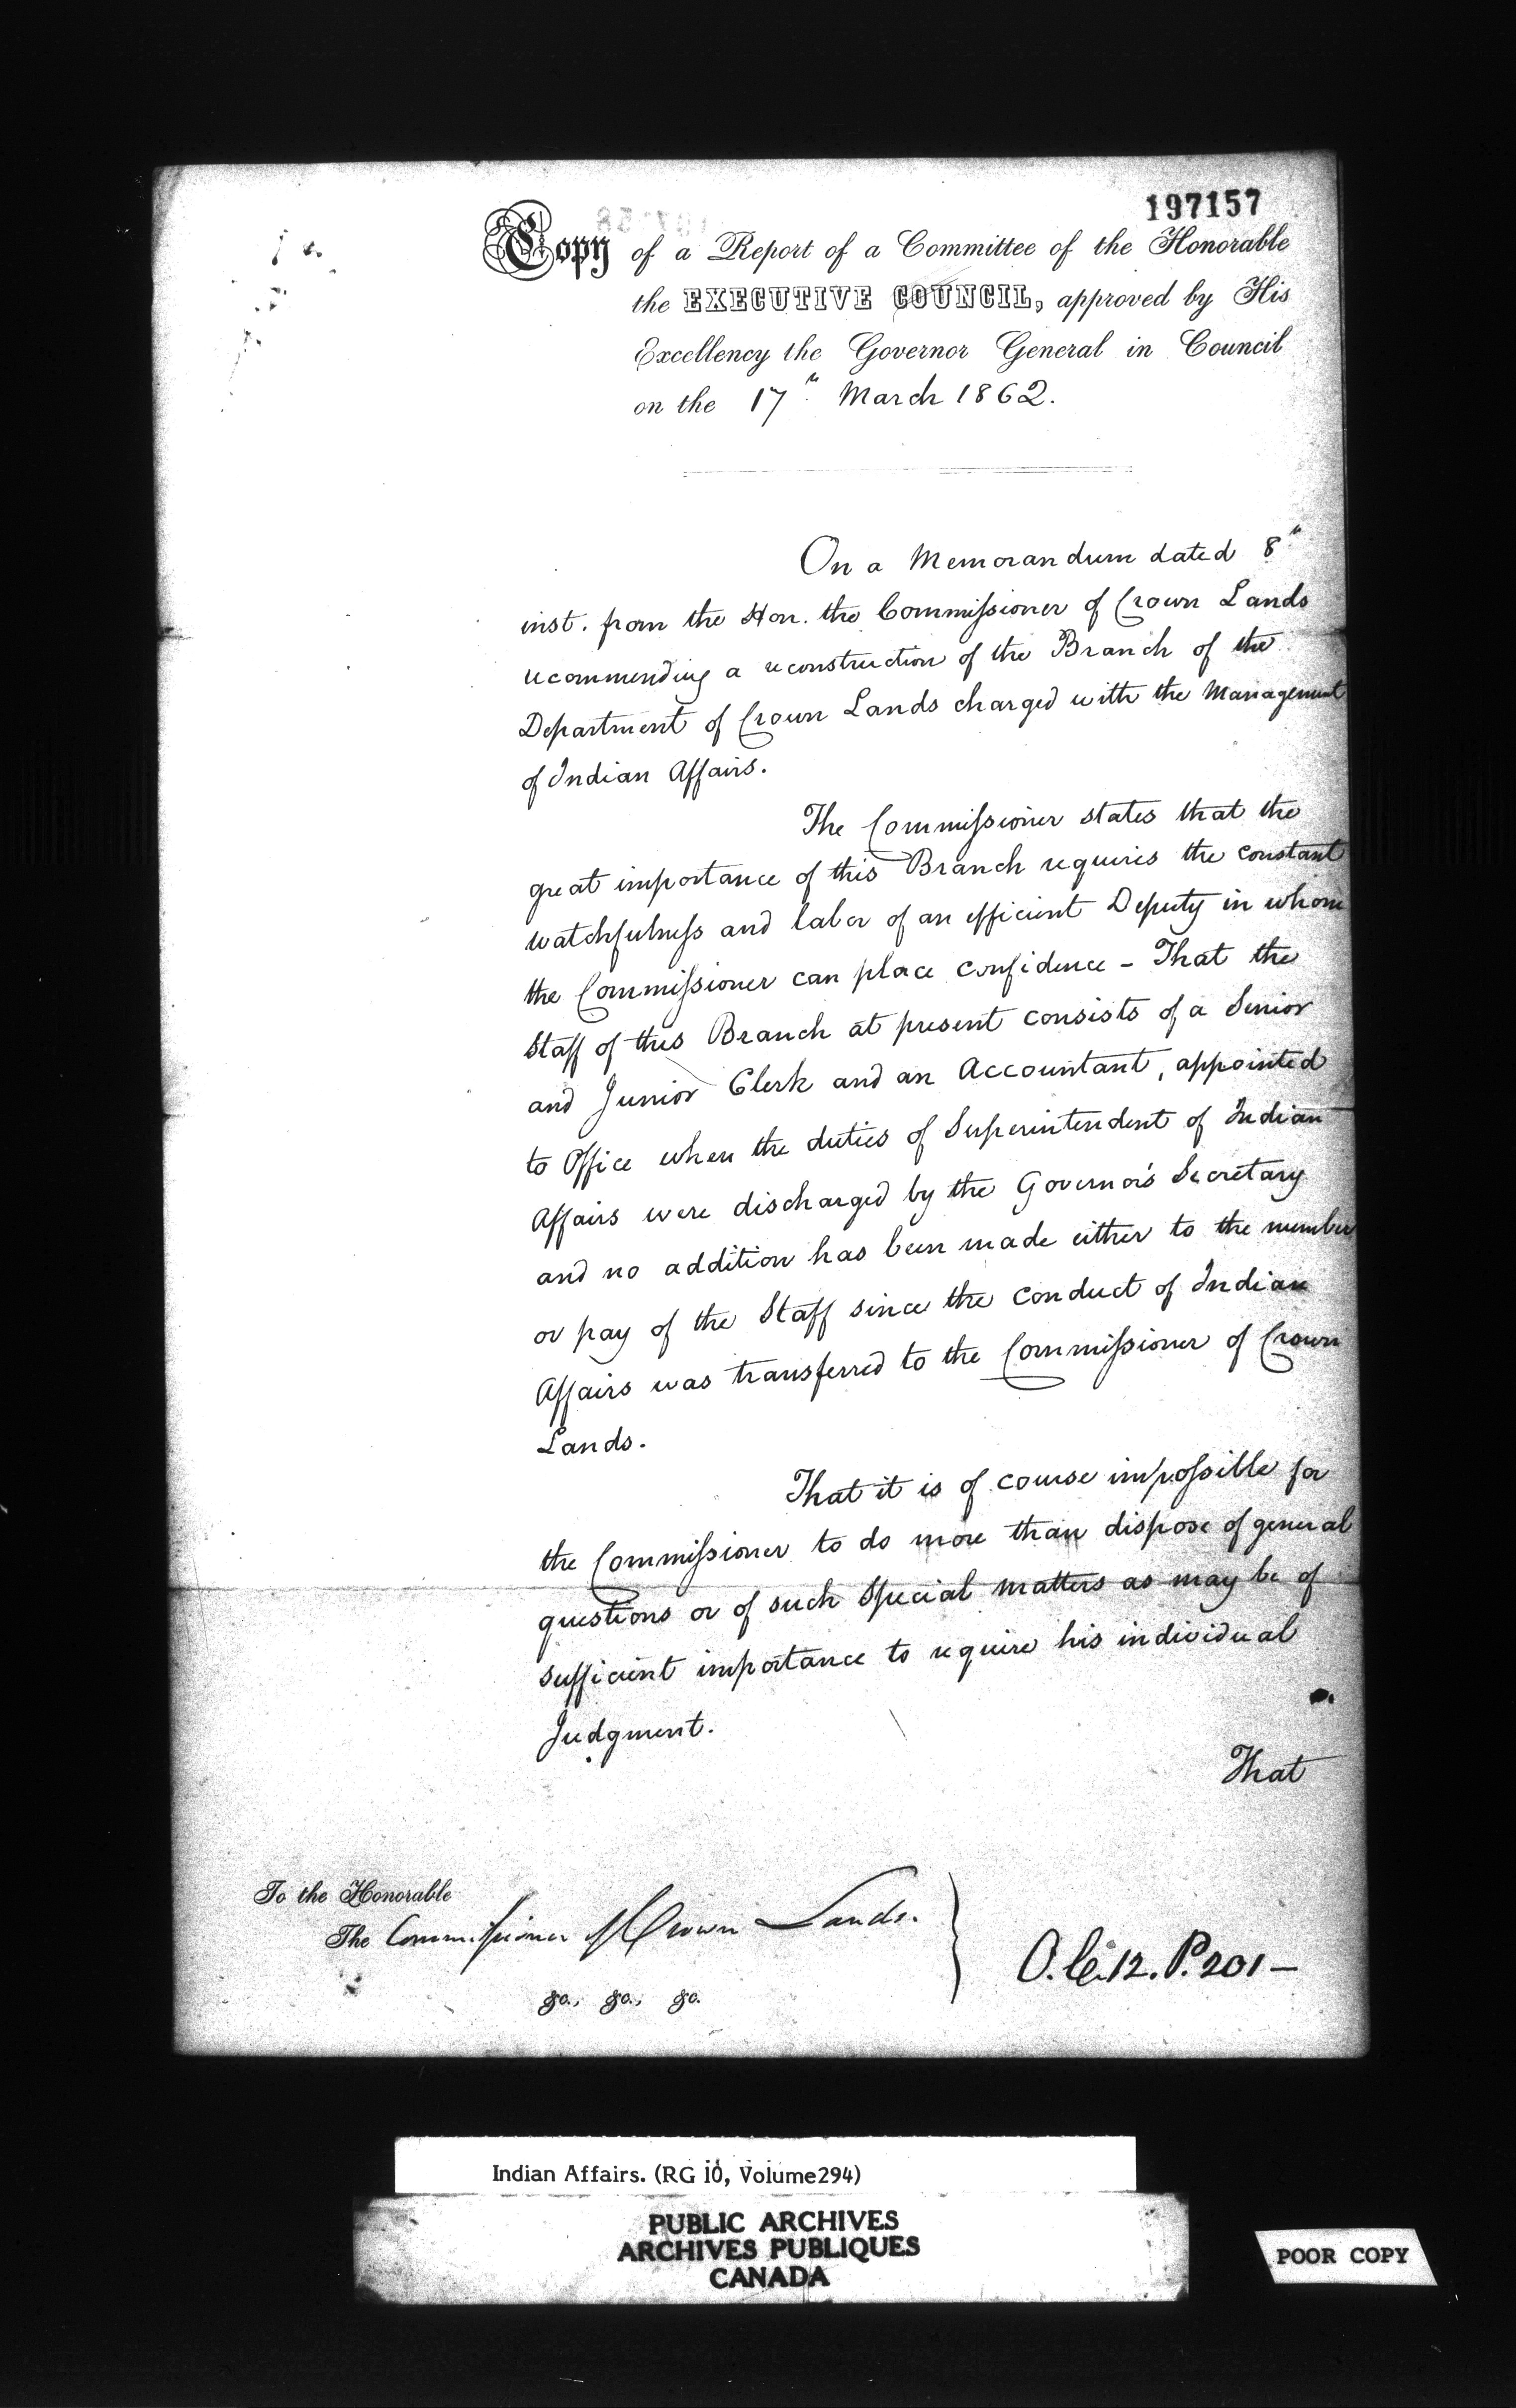 197157
Copy of a Report of a Committee of the Honorable
the EXECUTIVE COUNCIL, approved by His
Excellency the Governor General in Council
on the 17th March 1862.
On a Memorandum dated 8th
inst. from the Hon. the Commissioner of Crown Lands
recommending a reconstruction of the Branch of the
Department of Crown Lands charged with the Management
of Indian Affairs.
The Commissioner states that the
great importance of this Branch requires the constant
watchfulness and labor of an efficient Deputy in whom
the Commissioner can place confidence - That the
Staff of this Branch at present consists of a Senior
and Junior Clerk and an Accountant, appointed
to Office when the duties of Superintendent of Indian
Affairs were discharged by the Governor's Secretary
and no addition has been made either to the number
or pay of the Staff since the conduct of Indian
Affairs was transferred to the Commissioner of Crown
Lands.
That it is of course impossible for
the Commissioner to do more than dispose of general
questions or of such special matters as may be of
sufficient importance to require his individual
Judgment.
That
To the Honorable
The Commissioner of Crown Lands.
&c., &c., &c.
O.C. 12. P. 201 -
Indian Affairs. (RG 10, Volume 294)
PUBLIC ARCHIVES
ARCHIVES PUBLIQUES
CANADA
POOR COPY